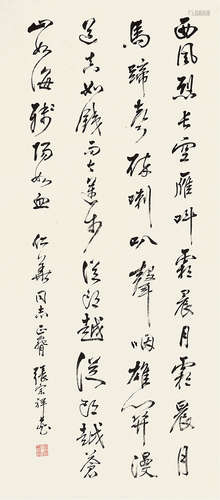 西風烈長空雁叫霜晨月霜晨月
馬蹄聲碎喇叭聲咽雄關漫
道真如鐵而今邁步從頭越從頭越蒼
山如海殘陽如血 同志正腕 張宗祥書